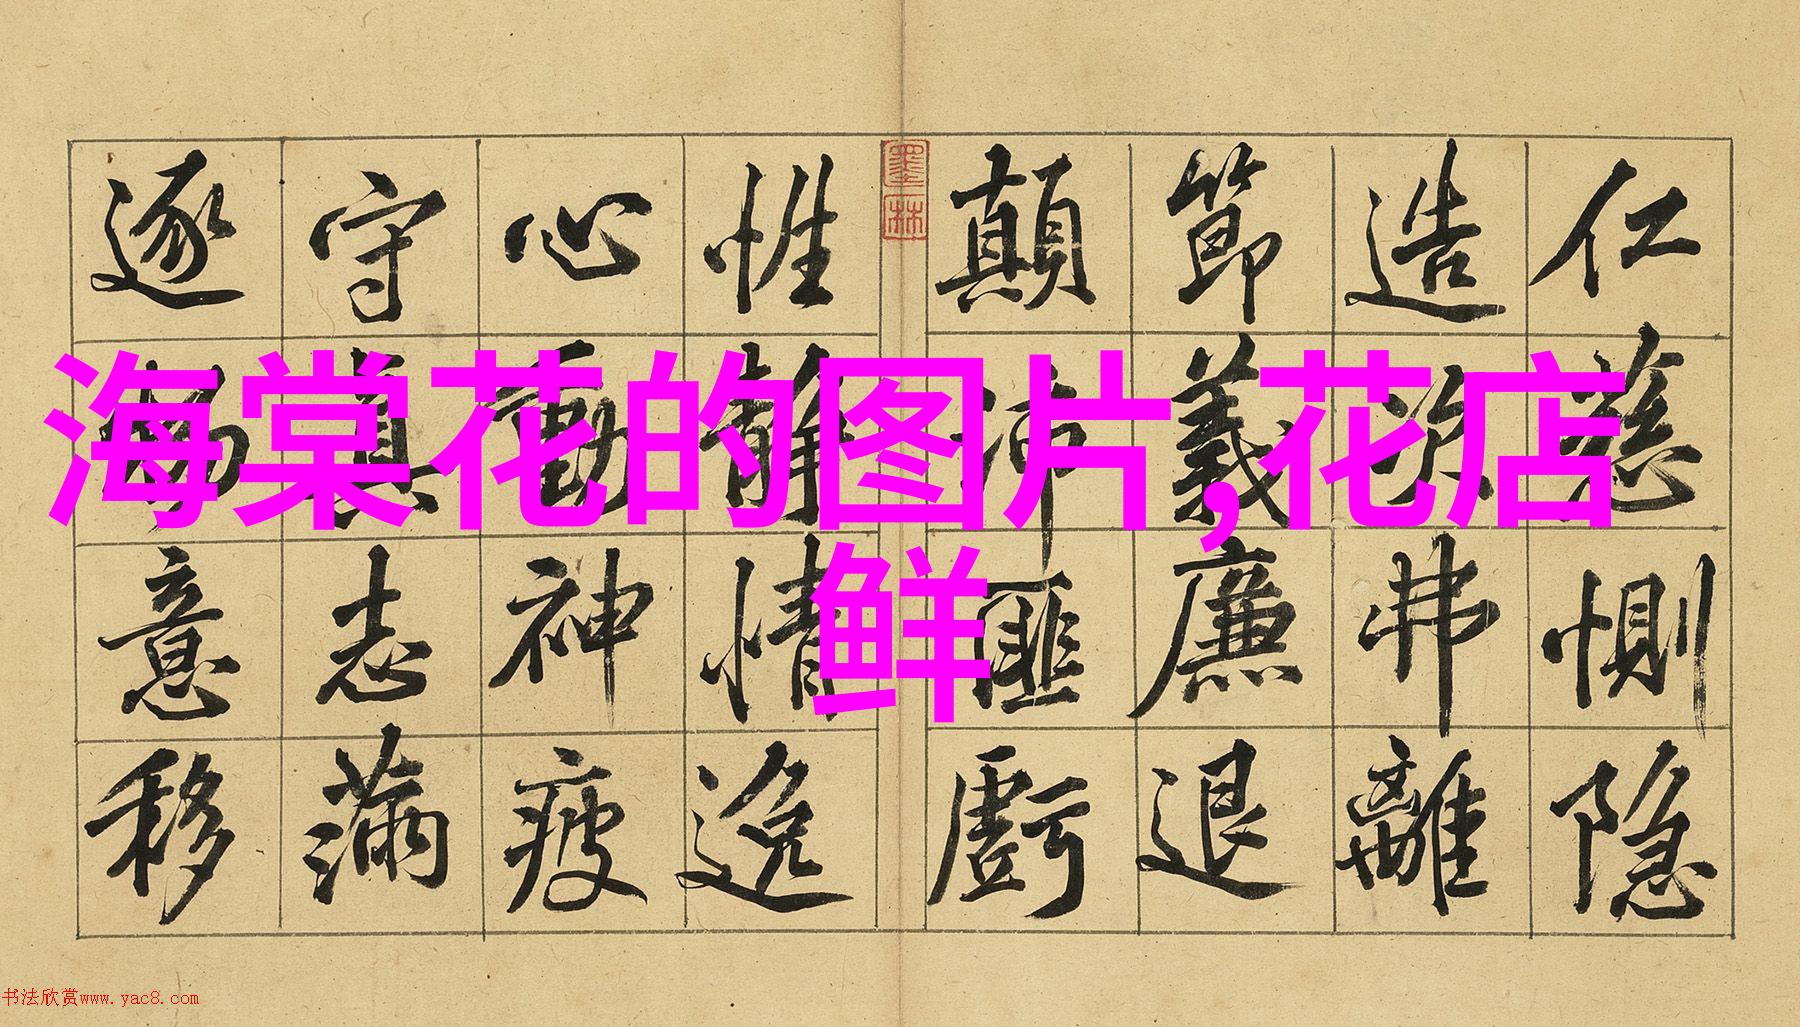 海棠花的图片,花店
鲜
仁慈惻隐
造次弗離
節義廉退
顛沛匪虧
墨林
性靜情逸
心動神疲
守真志滿
逐物意移
书法欣赏www.yac8.com